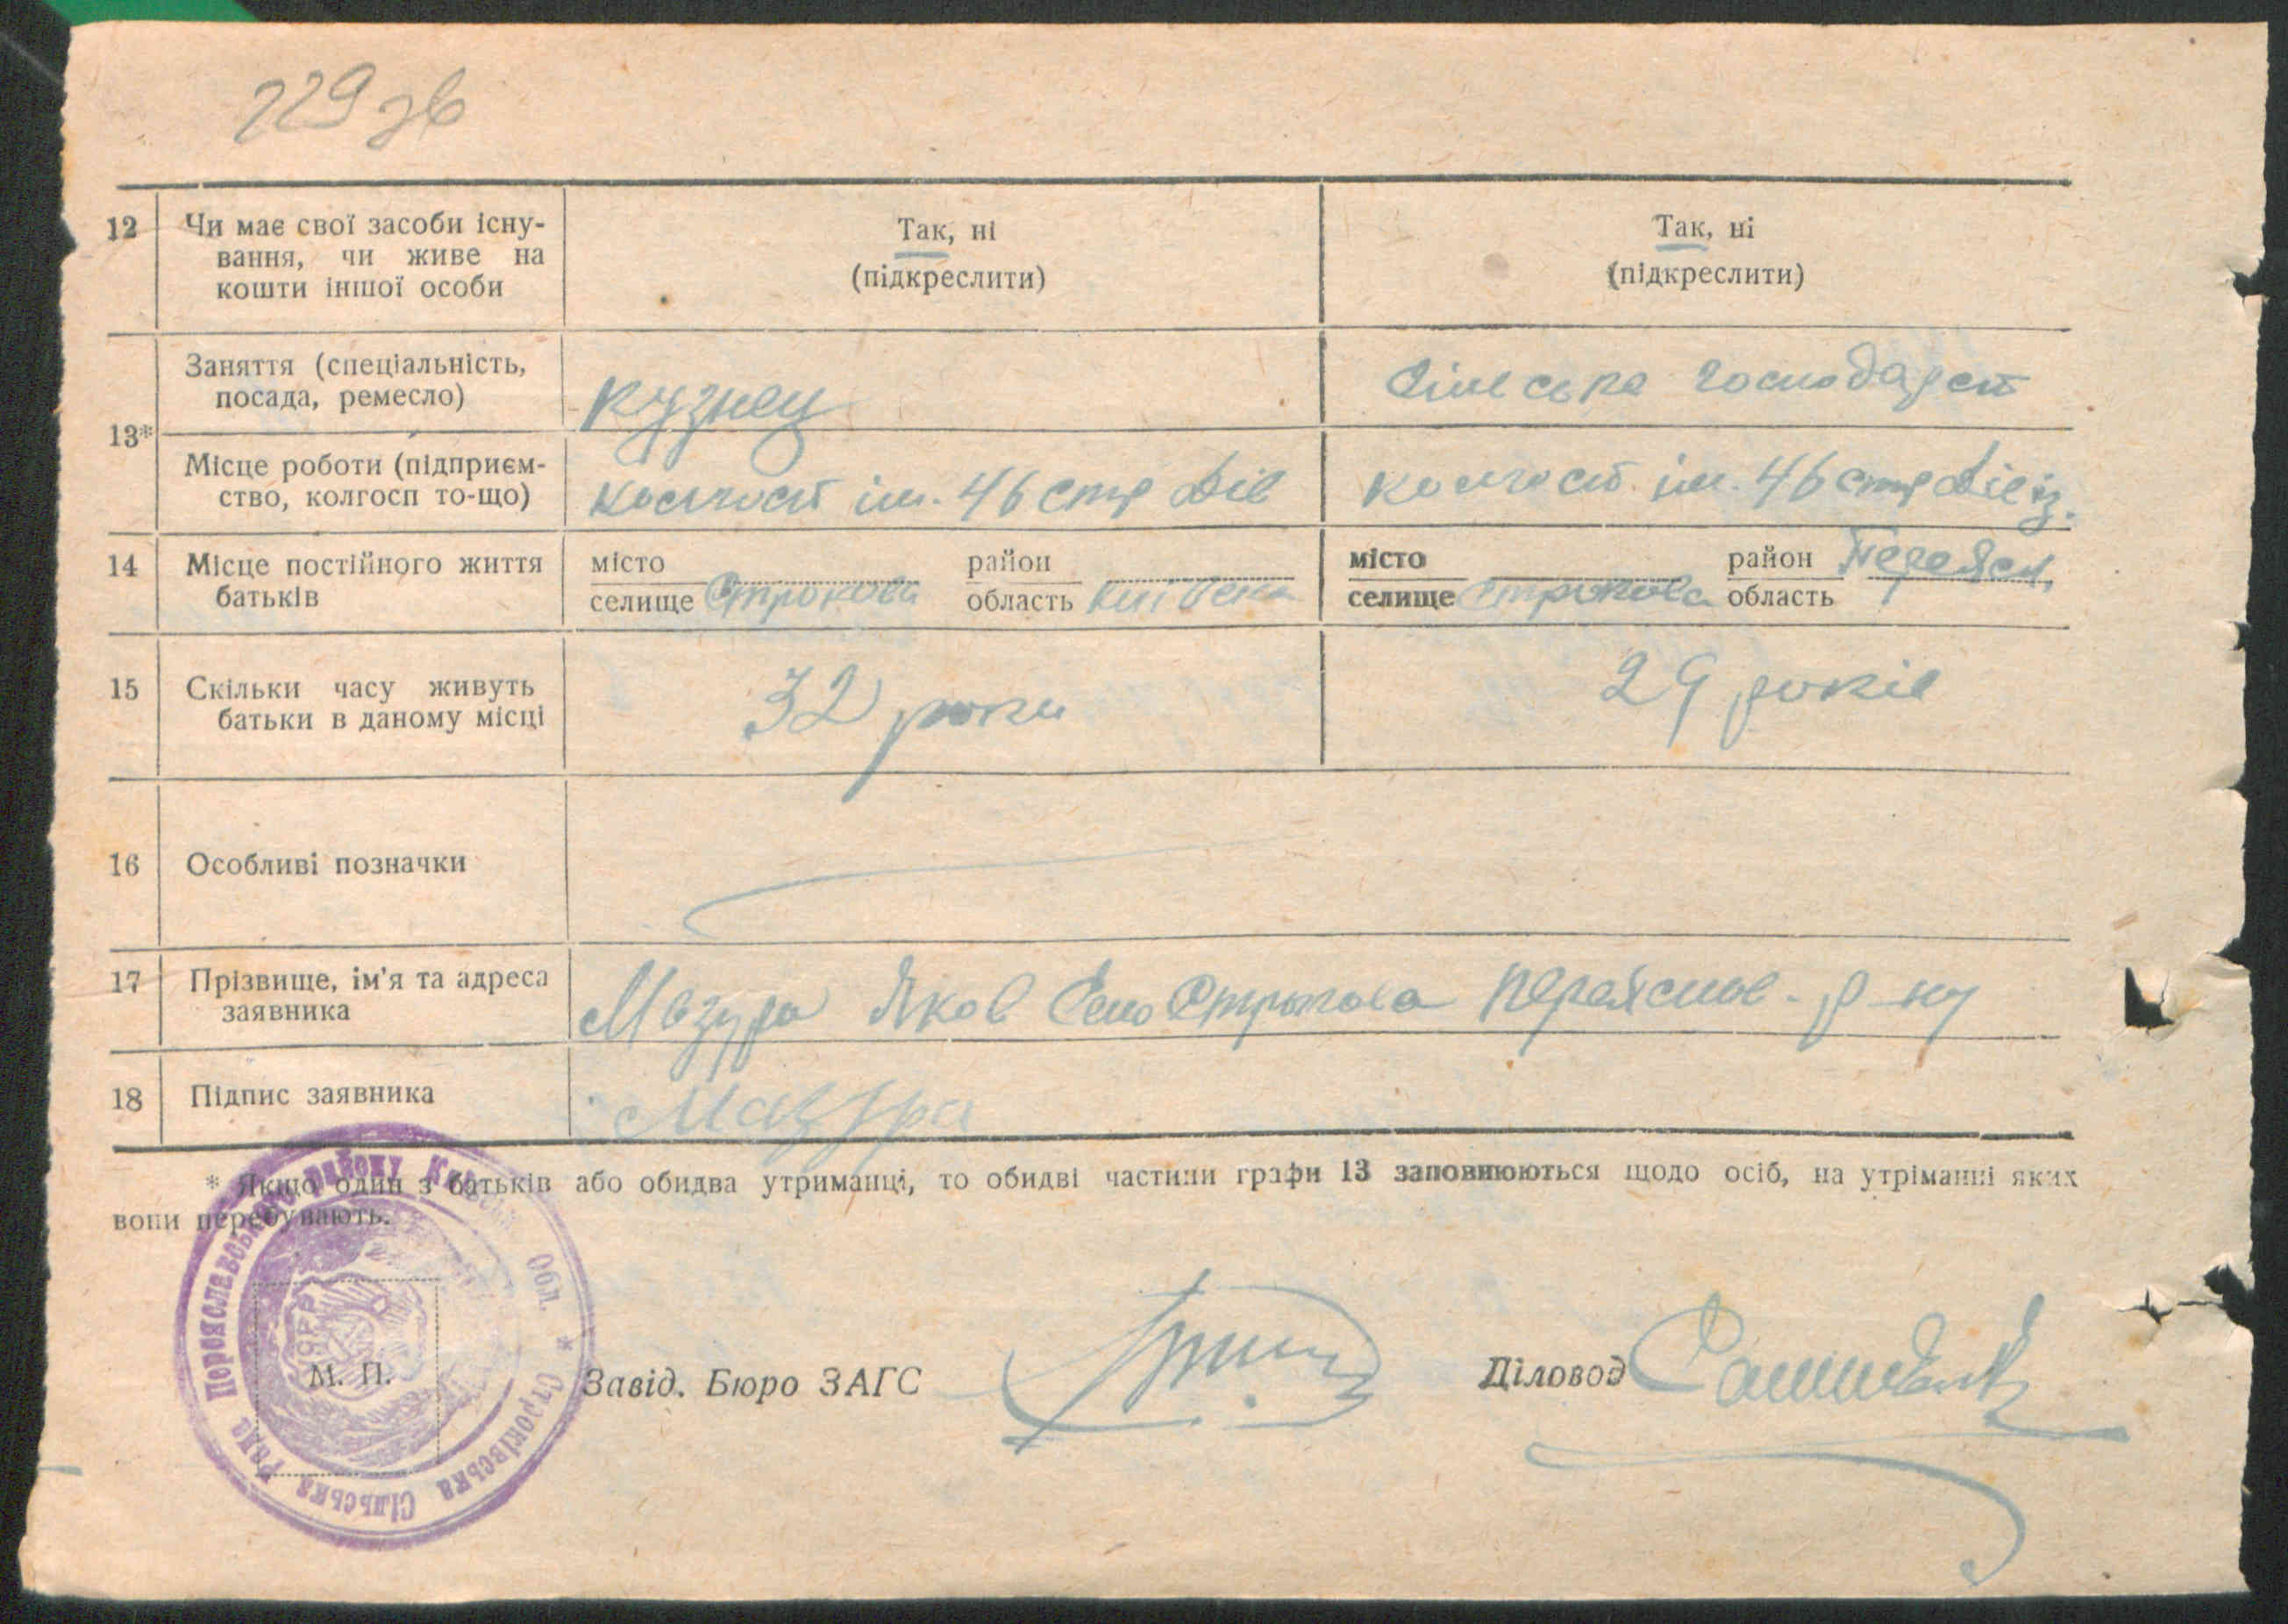 229 зв
12 Чи має свої засоби існу-
вання, чи живе на
кошти іншої особи
Так, ні
(підкреслити)
Так, ні
(підкреслити)
13*
Заняття (спеціальність,
посада, ремесло)
кузнец
Сільська господарст
Місце роботи (підприєм-
ство, колгосп то-що)
колгосп ім. 46 стр Див
колгосп ім. 46 стр Дивіз.
14 Місце постійного життя
батьків
місто
селище Строкова
район
область Київска
місто
селище Строкова
район Переясл.
область
15 Скільки часу живуть
батьки в даному місці
32 роки
29 років
16 Особливі позначки
17 Прізвище, ім'я та адреса
заявника
Мазура Яков Село Строкова Переяслов- р-ну
18 Підпис заявника
Мазура
* Якщо один з батьків або обидва утриманці, то обидві частини графи 13 заповнюються щодо осіб, на утріманні яких
вони перебувають.
Строківська Сільська Рада Порояславського району Київської Обл. *
УРСР
М. П.
Завід. Бюро ЗАГС
Діловод